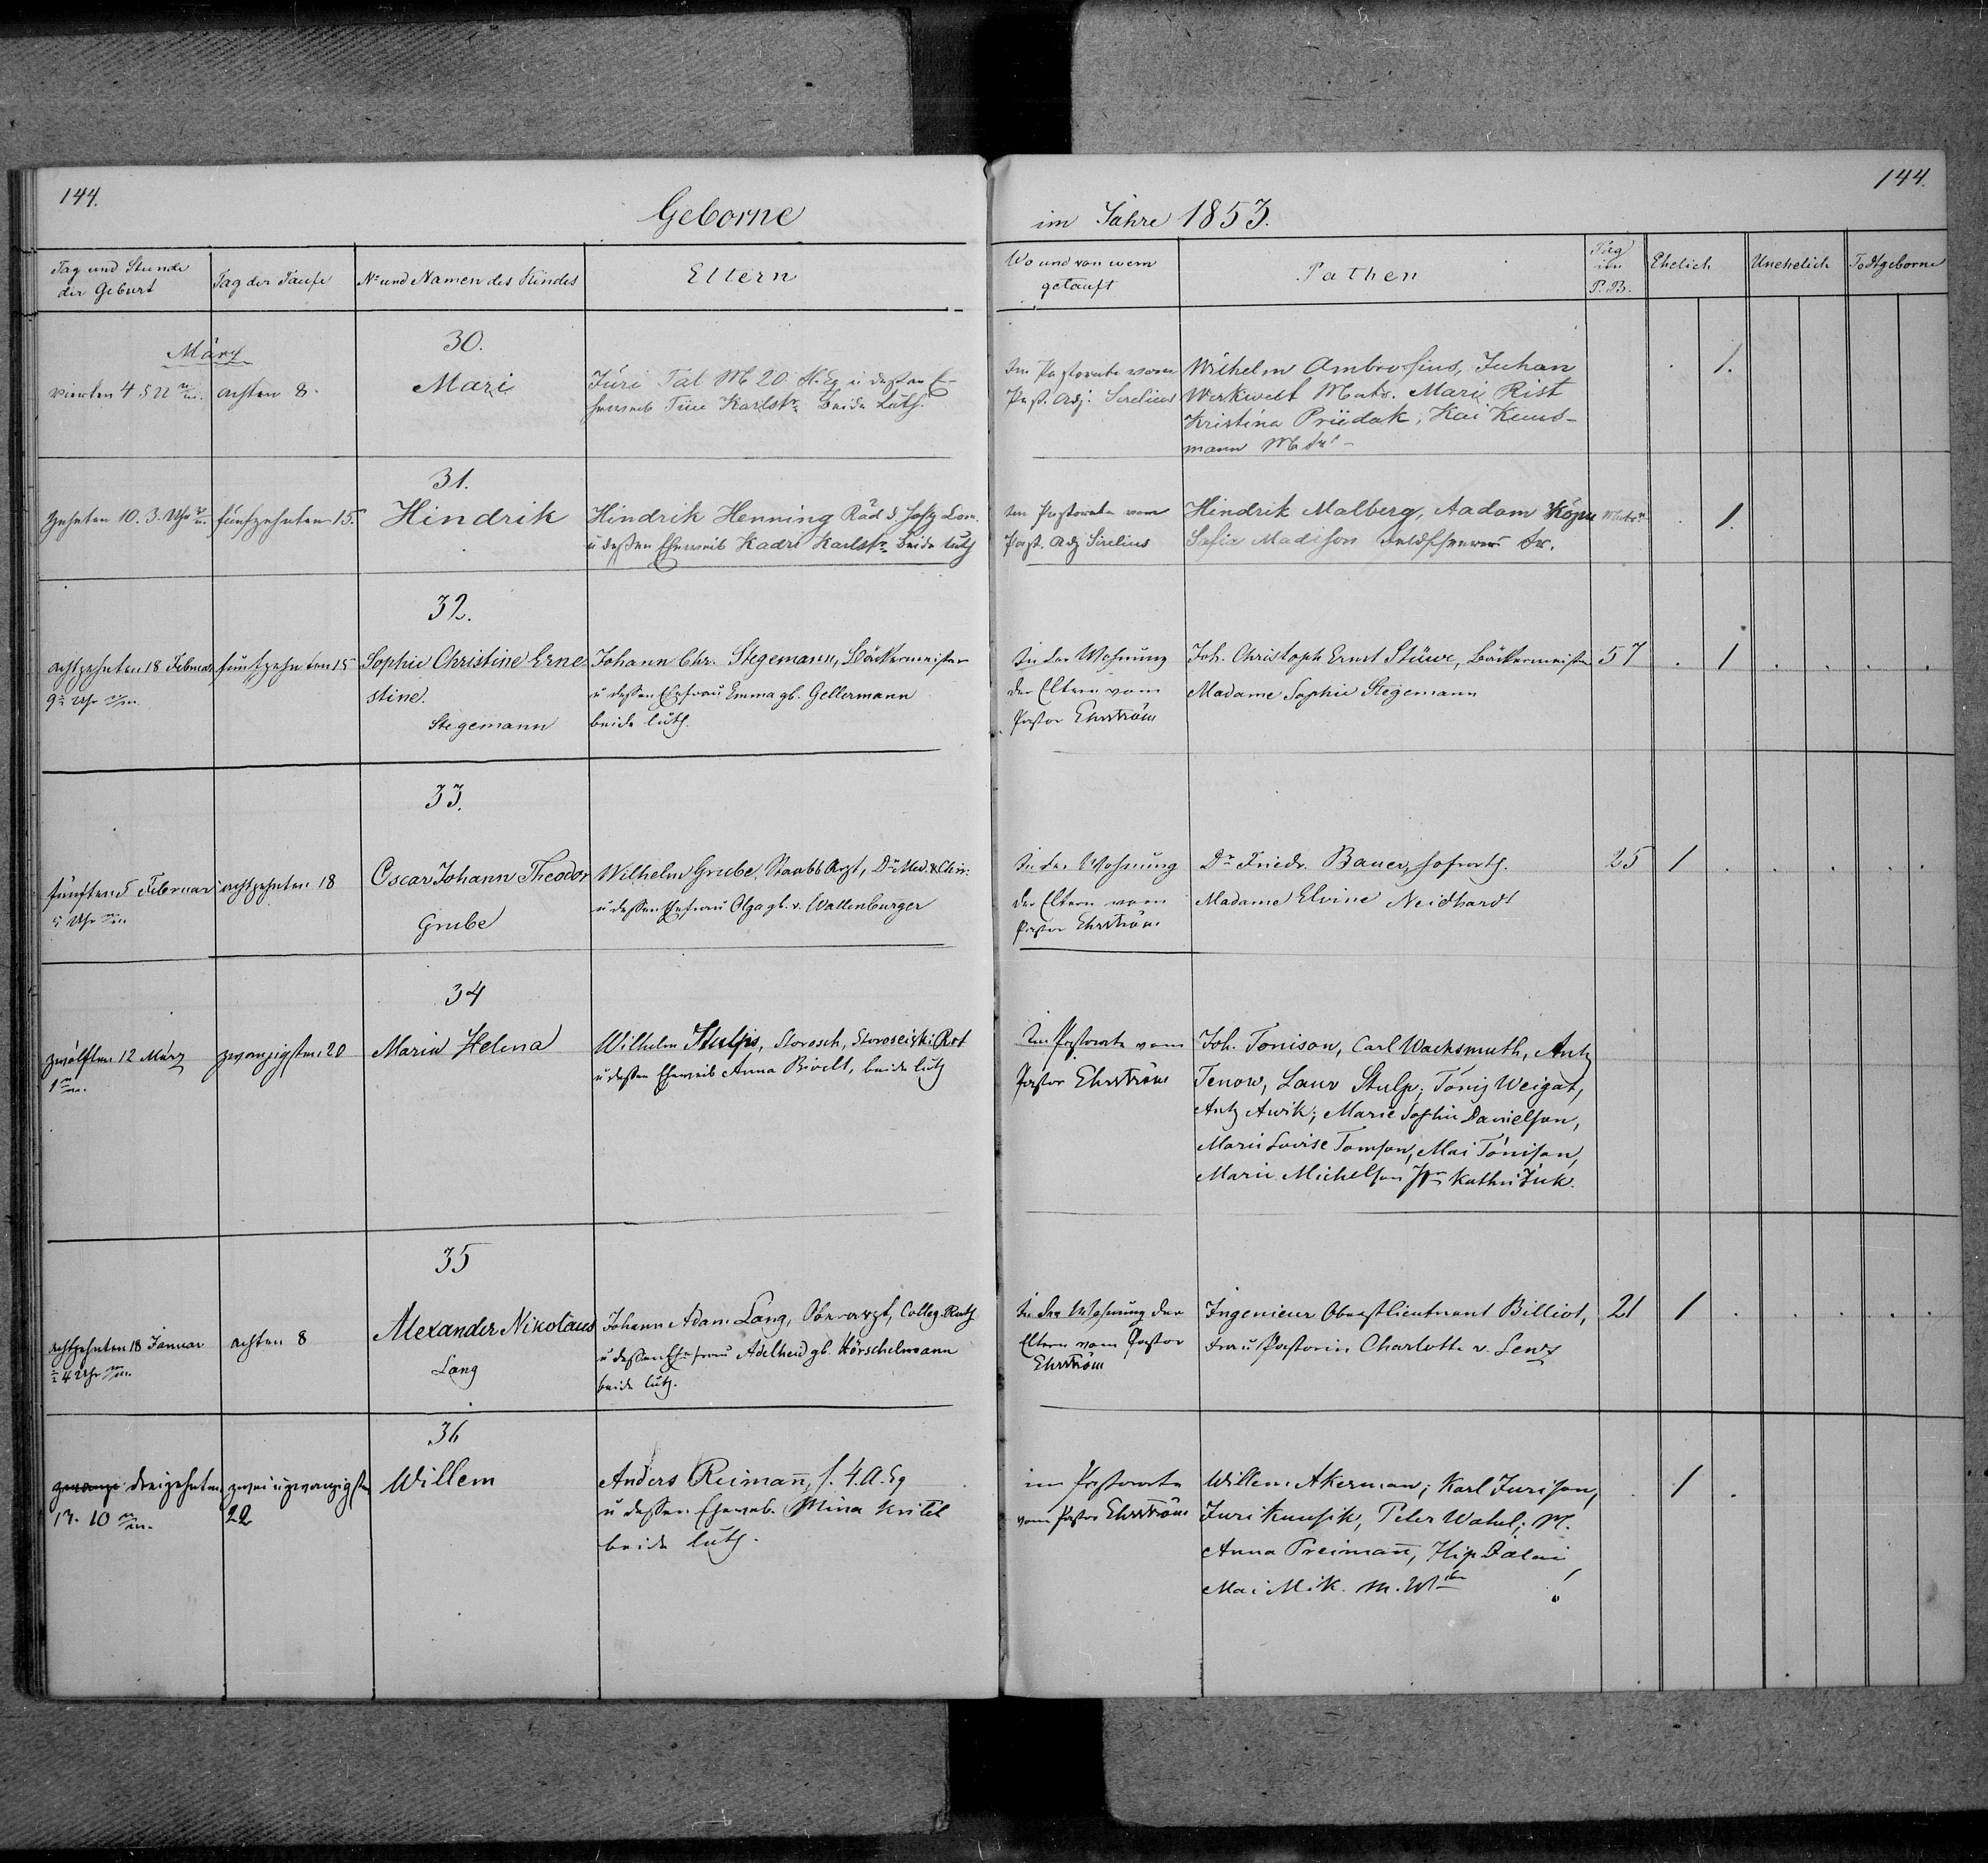 144.
Geborne
im Jahre 1853.
144.
Tag und Stunde
der Geburt
Tag der Taufe
No und Namen des Kindes
Eltern
Wo und von wem
getauft
Pathen
Tag
im
P. B.
Ehelich
Unehelich
Todtgeborne
März
30.
vierten 4
achten 8.
Mari
Jüri Tal M 20
Tiio Karlstr beide luth.
Im Pastorate vom
Past. Adj. Sirelius
Wilhelm Ambrosius, Juhan
Werkwelt Matr. Marie Rist
Kristina Priidak, Kai Kuus-
mann
1.
31.
zehnten 10. 3. Uhr
fünfzehnten 15.
Hindrik
Hindrik Henning
u deßen Eheweib Kadri Karlstr beide luth
Im Pastorate vom
Past. Adj Sirelius
Hindrik Malberg, Aadam Köpu Matr
Sofia Madisson Feldscheerers Fr.
1
32.
achtzehnten 18 Februar
9½ Uhr
fünfzehnten 15
Sophie Christine Erne-
stine.
Stegemann
Johann Chr. Stegemann, Bäckermeister
u deßen Ehefrau Emma gb. Gellermann
beide luth.
In der Wohnung
der Eltern vom
Pastor Ehrström
Joh. Christoph Ernst Stüwe, Bäckermeister
Madame Sophie Stegemann
57
1
33.
fünften 5 Februar
5 Uhr
achtzehnten 18
Oscar Johann Theodor
Grube
Wilhelm Grube, Staabs Arzt, Dr Med. & Chir.
u deßen Ehefrau Olga gb. v. Wallenburger
In der Wohnung
der Eltern vom
Pastor Ehrström
Dr Friedr. Bauer, Hofrath.
Madame Elvine Neidhardt
25
1
34
zwölften 12 März
1
zwanzigsten 20
Maria Helena
Wilhelm Stulps,
u deßen Eheweib Anna beide luth
Im Pastorate vom
Pastor Ehrström
Joh. Tonison, Carl Wachsmuth, Antz
Tenow, Laur Stulp, Tönis Weigat,
Antz Awik; Marie Sophie Danielson,
Marie Louise Tomson, Mai Tönison,
Marie Michelson Kathri Juk.
35
achtzehnten 18 Januar
½ 4 Uhr
achten 8
Alexander Nikolaus
Lang
Johann Adam Lang, Oberarzt, Colleg. Rath
u deßen Ehefrau Adelheid gb. Hörschelmann
beide luth.
In der Wohnung der
Eltern vom Pastor
Ehrström
Ingenieur Oberstlieutnant Billiot,
Frau Pastorin Charlotte v. Lenz
21
1
36
dreizehnten
13. 10
zwei u zwanzigsten
22
Willem
Anders Reimann,
u deßen Eheweib Mina Kritel
beide luth.
im Pastorate
vom Pastor Ehrström
Willem Akerman; Karl Jurison,
Juri Kuusik, Peter Wahel; M.
Anna Preimann,
Mai Mik.
1